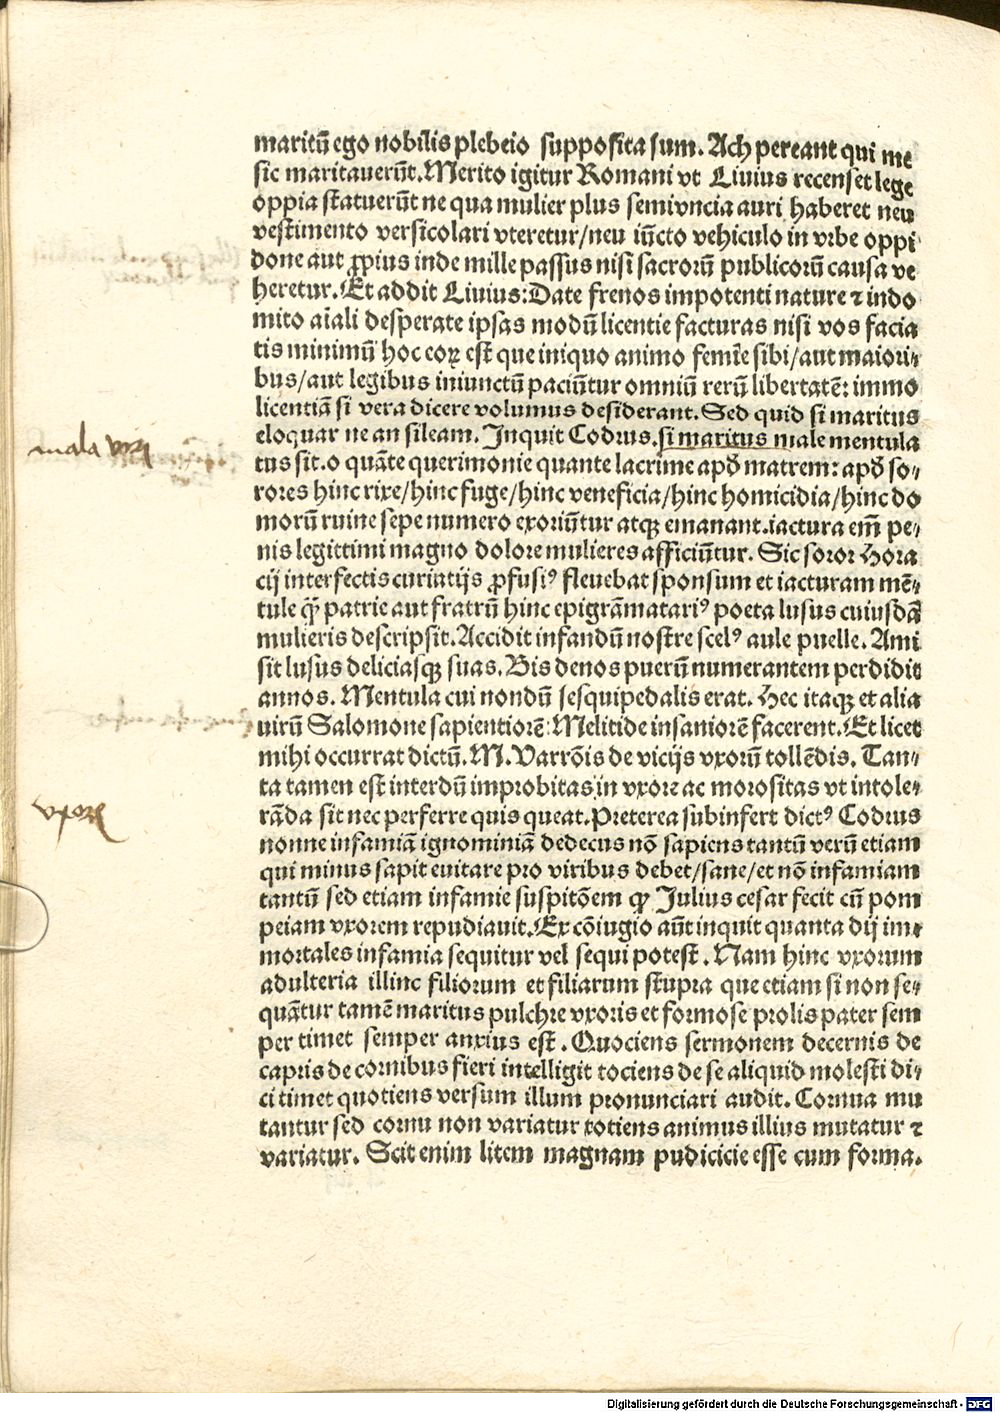 maritū ego nobilis plebeio supposita sum. Ach pereant qui me
sic maritauerūt. Merito igitur Romani vt Liuius recenset lege
oppia statuerūt ne qua mulier plus semivncia auri haberet neu
vestimento versicolari vteretur/neu iūcto vehiculo in vrbe oppi
done aut ꝓpius inde mille passus nisi sacrorū publicorū causa ve
heretur. Et addit Liuius: Date frenos impotenti nature ⁊ indo
mito aīali desperate ipsas modū licentie facturas nisi vos facia
tis minimū hoc coꝝ est que iniquo animo femīe sibi/aut maiori⸗
bus/aut legibus iniunctū paciūtur omniū rerū libertatē: immo
licentiā si vera dicere volumus desiderant. Sed quid si maritus
eloquar ne an sileam. Inquit Codrus. si maritus male mentula
tus sit. o quāte querimonie quante lacrime apđ matrem: apđ so⸗
rores hinc rixe/hinc fuge/hinc veneficia/hinc homicidia/hinc do
morū ruine sepe numero exoriūtur atqꝫ emanant. iactura em̄ pe⸗
nis legittimi magno dolore mulieres afficiūtur. Sic soror Hora
cij interfectis curiatijs ꝓfusiꝰ fleuebat sponsum et iacturam mē⸗
tule q̄ꝫ patrie aut fratrū hinc epigrāmatariꝰ poeta lusus cuiusdā
mulieris descripsit. Accidit infandū nostre scelꝰ aule puelle. Ami
sit lusus deliciasqꝫ suas. Bis denos puerū numerantem perdidit
annos. Mentula cui nondū sesquipedalis erat. Hec itaqꝫ et alia
virū Salomone sapientiorē: Melitide insaniorē facerent. Et licet
mihi occurrat dictū. M. Varrōis de vicijs vxorū tollēdis. Tan⸗
ta tamen est interdū improbitas in vxore ac morositas vt intole⸗
rāda sit nec perferre quis queat. Preterea subinfert dictꝰ Codrus
nonne infamiā ignominiā dedecus nō sapiens tantū verū etiam
qui minus sapit euitare pro viribus debet/sane/et nō infamiam
tantū sed etiam infamie suspitōem ꝙ Julius cesar fecit cū pom
peiam vxorem repudiauit. Ex cōiugio aūt inquit quanta dij im⸗
mortales infamia sequitur vel sequi potest. Nam hinc vxorum
adulteria illinc filiorum et filiarum stupra que etiam si non se⸗
quātur tamē maritus pulchre vxoris et formose prolis pater sem
per timet semper anxius est. Quociens sermonem decernis de
capris de cornibus fieri intelligit tociens de se aliquid molesti di⸗
ci timet quotiens versum illum pronunciari audit. Cornua mu
tantur sed cornu non variatur totiens animus illius mutatur ⁊
variatur. Scit enim litem magnam pudicicie esse cum forma.
mala viri
Digitalisierung gefördert durch die Deutsche Forschungsgemeinschaft - DFG